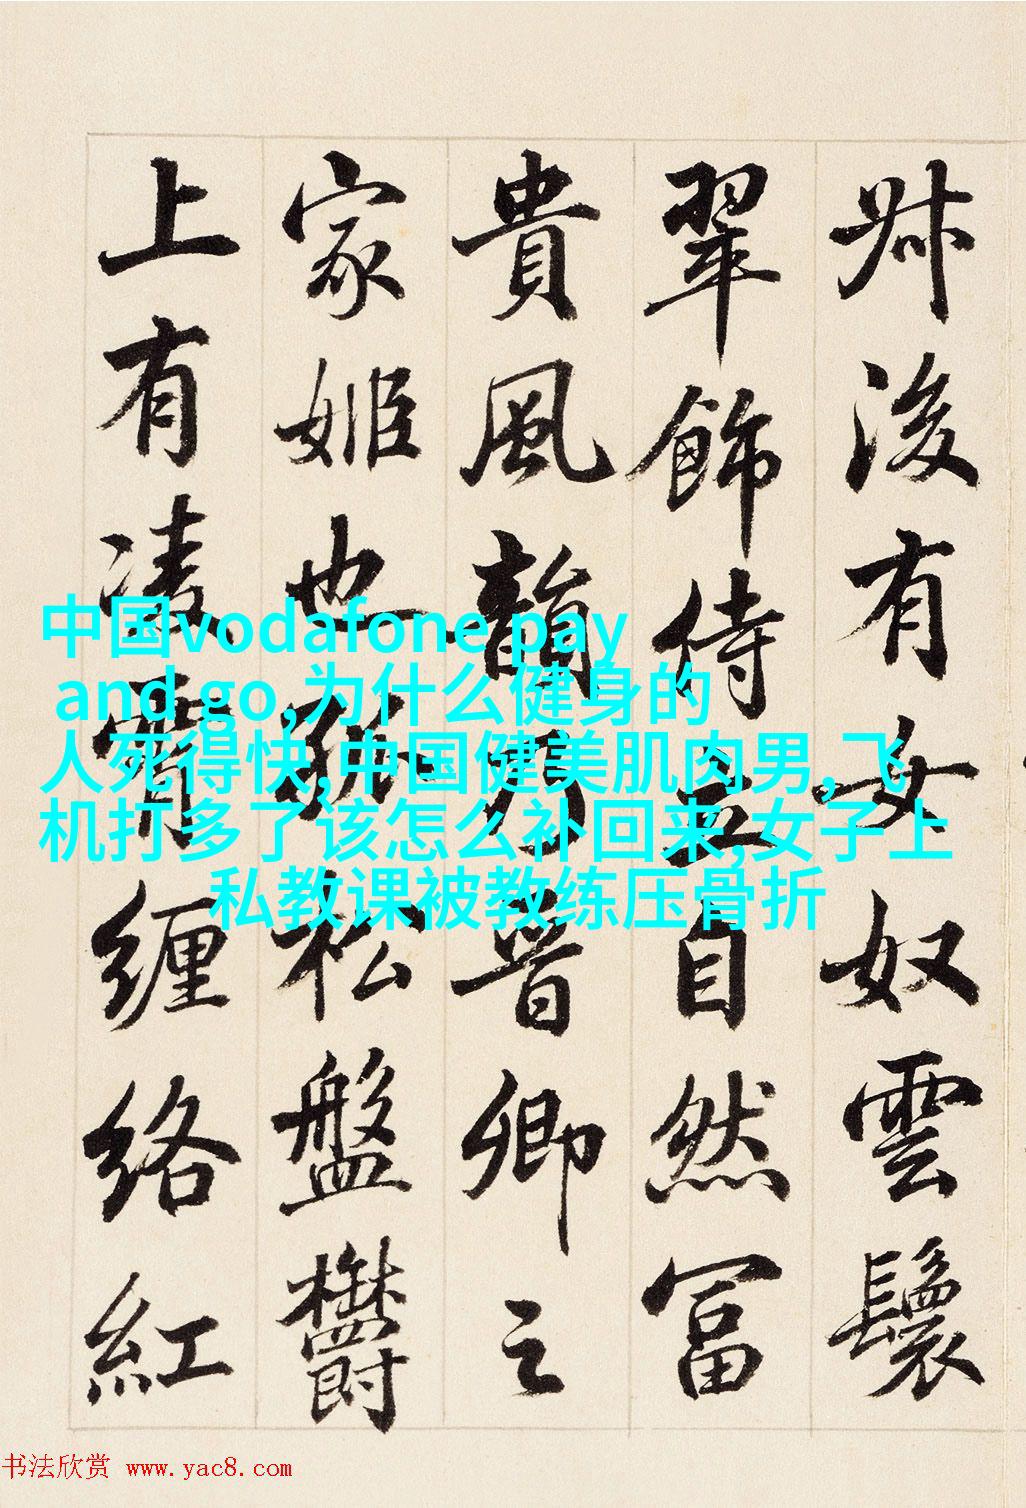 叔後有女奴雲鬟
翠飾侍立自然富
貴風韻乃晉卿之
家姬也孤松盤欝
上有凌霄纏絡紅
中国vodafone pay
and go,为什么健身的
人死得快,中国健美肌肉男,飞
机打多了该怎么补回来,女子上
私教课被教练压骨折
书法欣赏 www.yac8.com